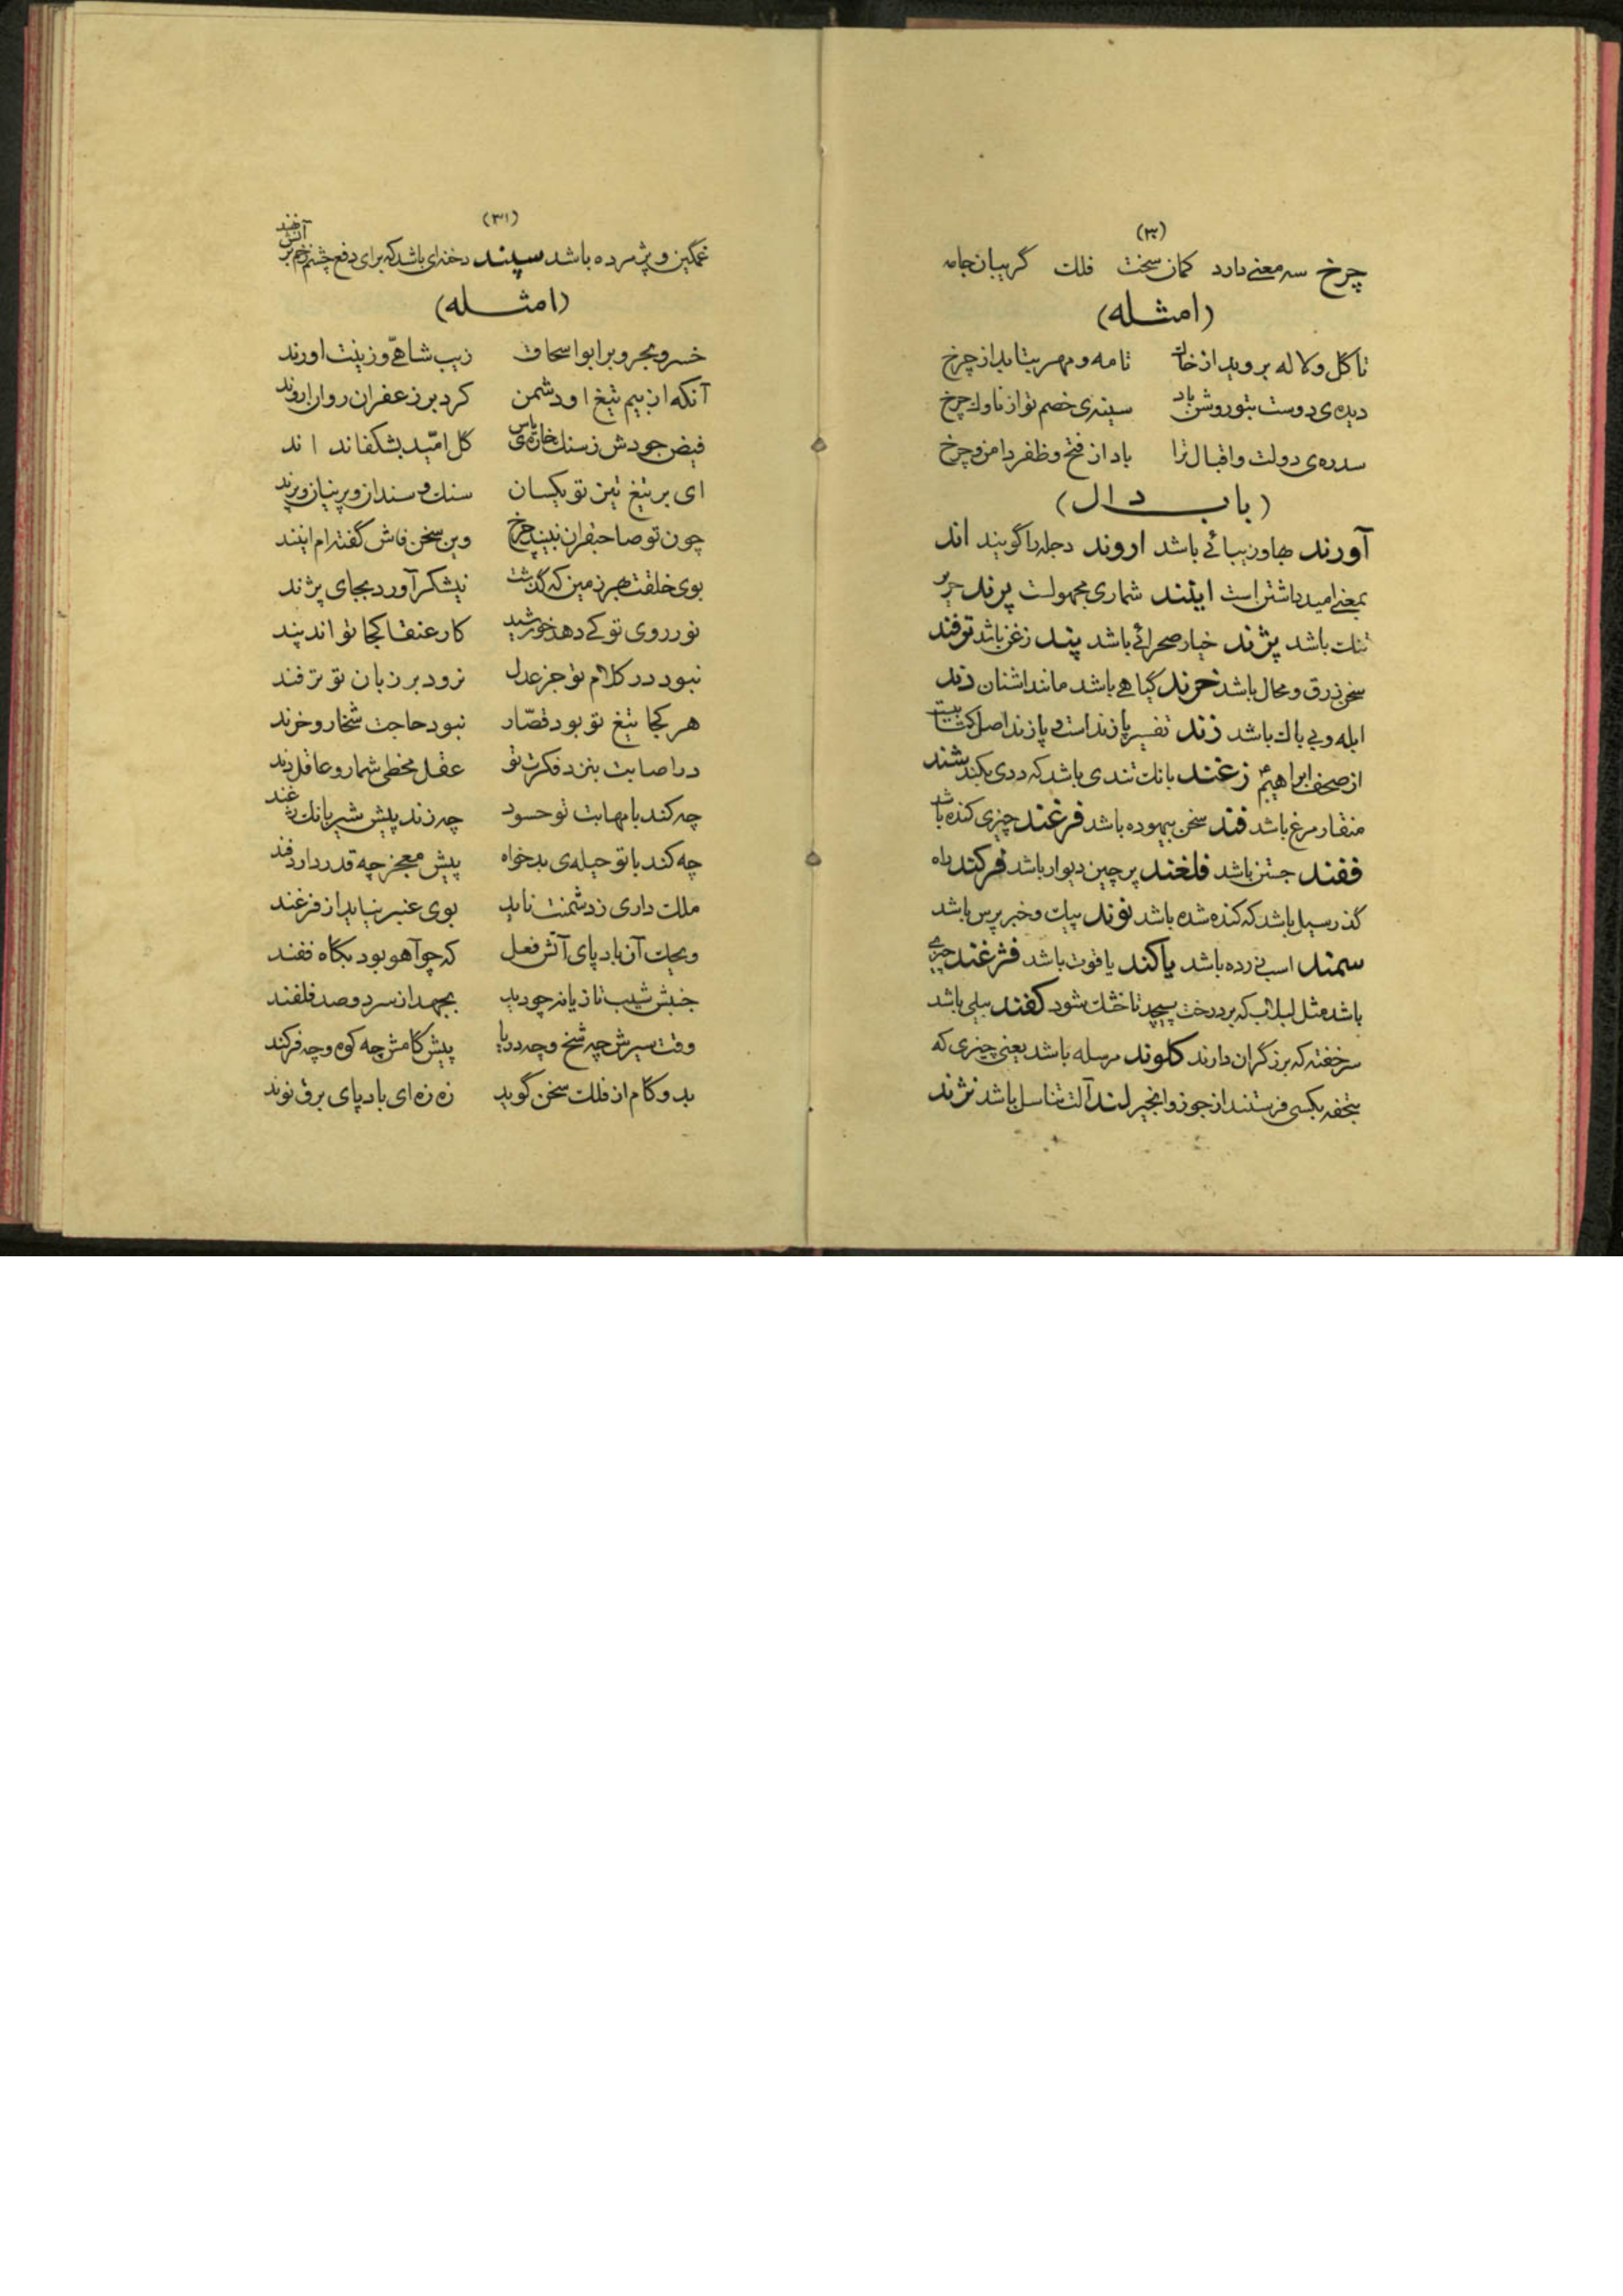 (۳۰)
چرخ سه معنی دارد کمان سخت فلك گریبان جامه
(امثله)
تا گل و لاله بروید از خاك تا مه و مهر بتابد از چرخ
دیده‌ی دوست بتو روشن باد سینه‌ی خصم تو از ناوك چرخ
سدره‌ی دولت و اقبال ترا باد از فتح و ظفر دامن و چرخ
(باب دال)
آورند بها و زیبائی باشد اروند دجله را گویند اند
بمعنی امید داشتن است ایند شماری مجهولست پرند حریر
تنك باشد پژند خیار صحرائی باشد پند زغن باشد ترفند
سخن زرق و محال باشد خرند گیاهی باشد مانند اشنان دند
ابله و بی باك باشد زند تفسیر پازند است و پازند اصل کتابیست
از صحف ابراهیم زغند بانك تندی باشد که ددی بکند شند
منقار مرغ باشد فند سخن بیهوده باشد فرغند چیزی کنده باشد
ففند جستن باشد فلغند پرچین دیوار باشد فرکند راه
گذر سیل باشد که کنده شده باشد نوند پیك و خبر پرس باشد
سمند اسب زرده باشد یاکند یاقوت باشد فژغند چیزی
باشد مثل لبلاب که بر درخت پیچد تا خشك شود کفند بیلی باشد
سر خفته که برزگران دارند کلوند مرسله باشد یعنی چیزی که
بتحفه بکسی فرستند از جوز و انجیر لند آلت تناسل باشد نژند
(۳۱)
غمگین و پژمرده باشد سپند دخنه‌ای باشد که برای دفع چشم زخم بر آتش نهند
(امثله)
خسرو بحر و بر ابو اسحاق زیب شاهی و زینت اورند
آنکه از بیم تیغ او دشمن کرد بر زعفران روان اروند
فیض جودش ز سنك خاره‌ی یاس گل امّید بشکفاند اند
ای بر تیغ تیز تو یکسان سنك و سندان و پرنیان و پرند
چون تو صاحبقران نبیند چرخ وین سخن فاش گفته‌ام ایند
بوی خلقت بهر زمین که گذشت نیشکر آورد بجای پژند
نور روی تو کی دهد خورشید کار عنقا کجا تواند پند
نبود در کلام تو جز عدل نرود بر زبان تو ترفند
هر کجا تیغ تو بود قصّار نبود حاجت شخار و خرند
در اصابت بنزد فکرت تو عقل مخطی شمار و عاقل دند
چه کند با مهابت تو حسود چه زند پیش شیر بانك زغند
چه کند با تو حیله‌ی بدخواه پیش معجز چه قدر دارد فند
ملك داری ز دشمنت ناید بوی عنبر نیاید از فرغند
ویحك آن باد پای آتش فعل که چو آهو بود بگاه ففند
جنبش شیب تازیانه چو دید بجهد از سر دو صد فلغند
وقت سیرش چه شخ و چه دریا پیش گامش چه کوه و چه فرکند
بدو گام از فلك سخن گوید زه زه ای باد پای برق نوند